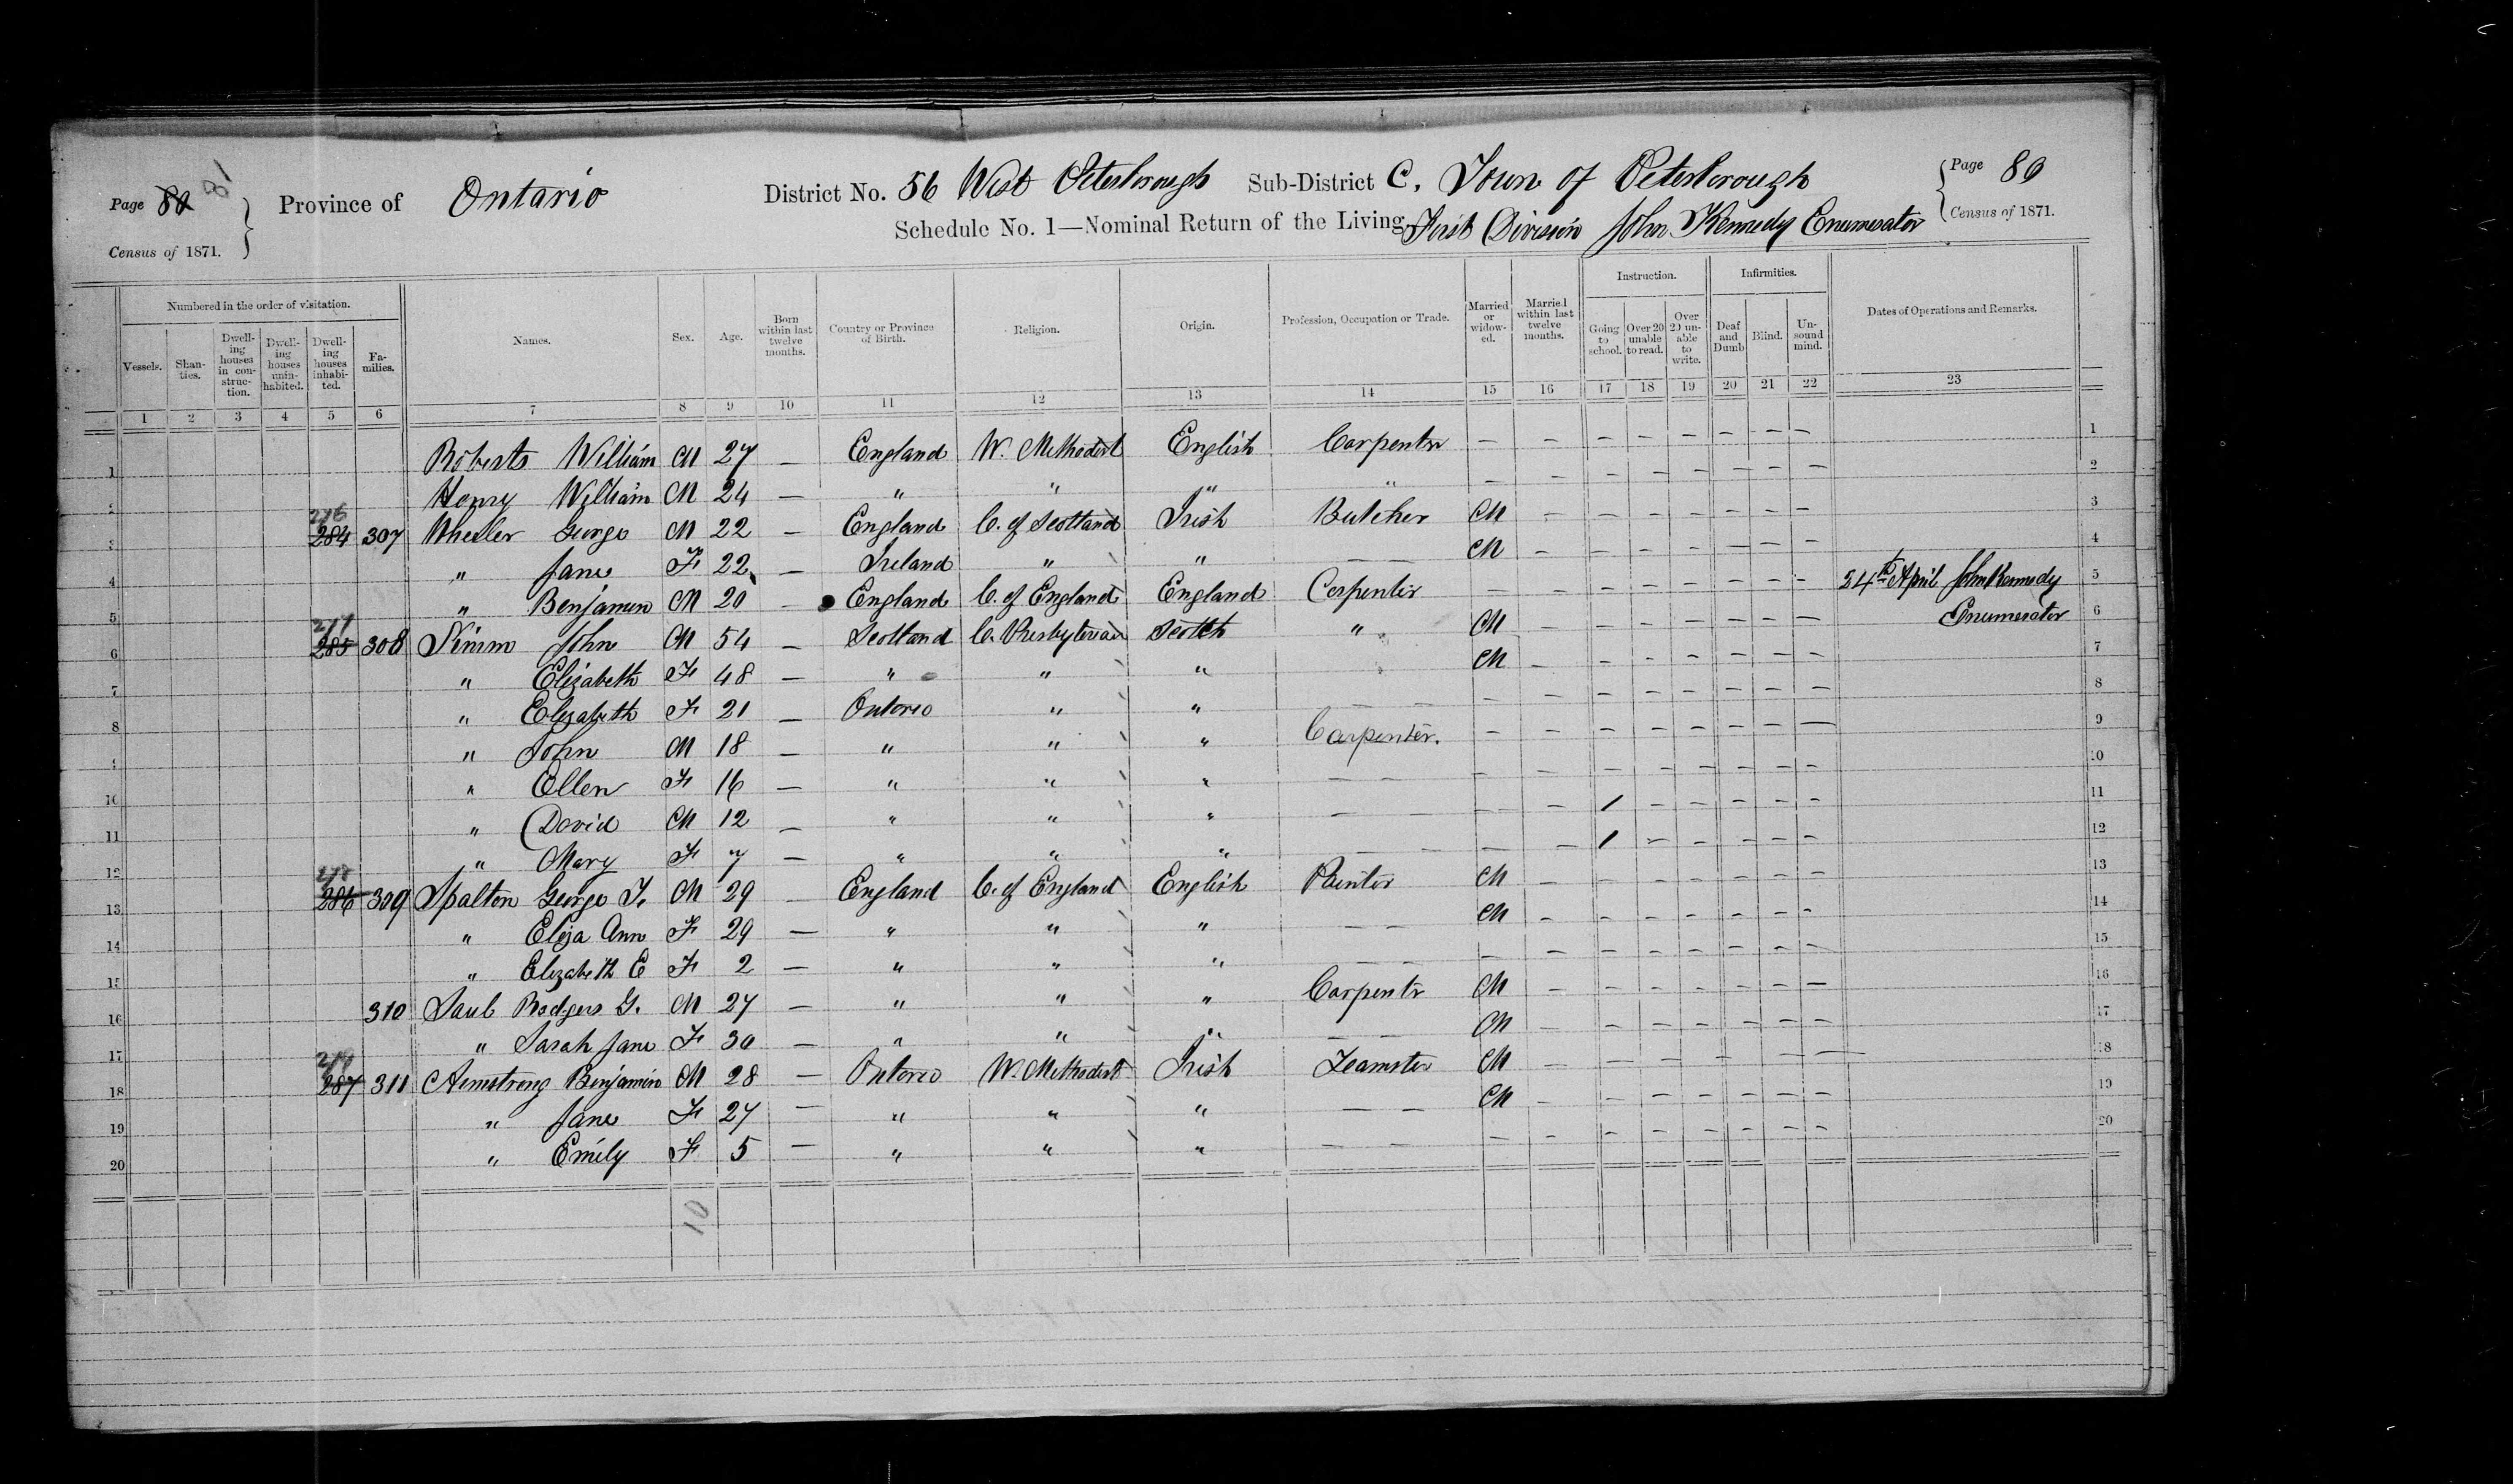 Page 80 81 Province of Ontario District No. 56 West Peterborough Sub-District C. Town of Peterborough Page 80
Census of 1871. Schedule No. 1—Nominal Return of the Living. First Division John Kennedy Enumerator Census of 1871.
Numbered in the order of visitation. Names. Sex. Age. Born within last twelve months. Country or Province of Birth. Religion. Origin. Profession, Occupation or Trade. Married or widow-ed. Married within last twelve months. Instruction. Infirmities. Dates of Operations and Remarks.
Vessels. Shan-ties. Dwell-ing houses in con-struc-tion. Dwell-ing houses unin-habited. Dwell-ing houses inhabi-ted. Fa-milies. Going to school. Over 20 unable to read. Over 20 un-able to write. Deaf and Dumb Blind. Un-sound mind.
1 2 3 4 5 6 7 8 9 10 11 12 13 14 15 16 17 18 19 20 21 22 23
1 Roberts William M 27 — England W. Methodist English Carpenter — — — — — — — — 1
2 Henry William M 24 — " " " " — — — — — — — — 2
3 276 284 307 Wheeler George M 22 — England C. of Scotland Irish Butcher M — — — — — — — 3
4 " Jane F 22 — Ireland " " — — M — — — — — — — 4
5 " Benjamin M 20 — England C. of England England Carpenter — — — — — — — — 24th April John Kennedy 5
6 277 285 308 Kimm John M 54 — Scotland C. Presbyterian Scotch " M — — — — — — — Enumerator 6
7 " Elizabeth F 48 — " " " M — — — — — — — 7
8 " Elizabeth F 21 — Ontario " " — — — — — — — — — — 8
9 " John M 18 — " " " Carpenter. — — — — — — — — 9
10 " Ellen F 16 — " " " — — — — — — — — — — 10
11 " David M 12 — " " " — — — — 1 — — — — — 11
12 " Mary F 7 — " " " — — — — 1 — — — — — 12
13 278 286 309 Spalton George F. M 29 — England C. of England English Painter M — — — — — — — 13
14 " Eliza Ann F 29 — " " " — — M — — — — — — — 14
15 " Elizabeth E F 2 — " " " — — — — — — — — — — 15
16 310 Saul Rodgers G. M 27 — " " " Carpentr M — — — — — — — 16
17 " Sarah Jane F 30 — " " " — — M — — — — — — — 17
18 279 287 311 Armstrong Benjamin M 28 — Ontario W. Methodist Irish Teamster M — — — — — — — 18
19 " Jane F 27 — " " " — — M — — — — — — — 19
20 " Emily F 5 — " " " — — — — — — — — — — 20
10